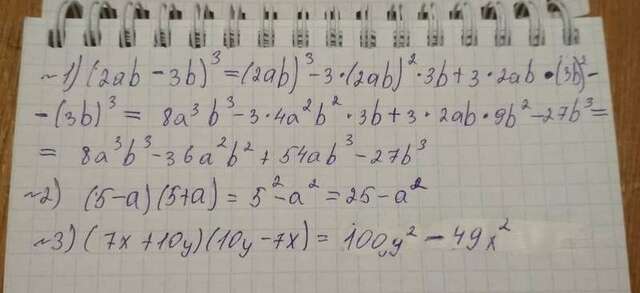 №1) (2ab - 3b)³ = (2ab)³ - 3·(2ab)²·3b + 3·2ab·(3b)² -
- (3b)³ = 8a³b³ - 3·4a²b²·3b + 3·2ab·9b² - 27b³ =
= 8a³b³ - 36a²b² + 54ab³ - 27b³
№2) (5-a)(5+a) = 5² - a² = 25 - a²
№3) (7x + 10y)(10y - 7x) = 100y² - 49x²